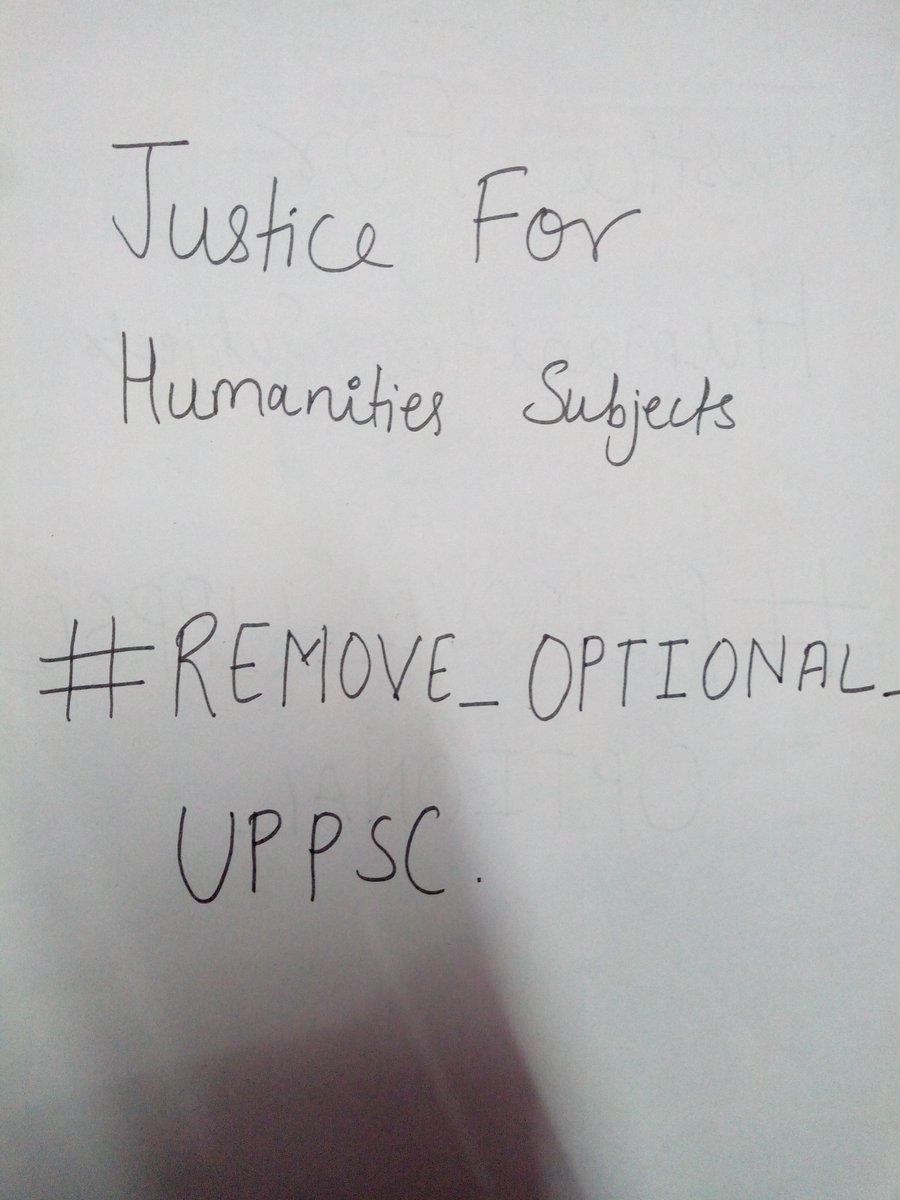 Justice For
Humanities Subjects
#REMOVE_OPTIONAL_
UPPSC.